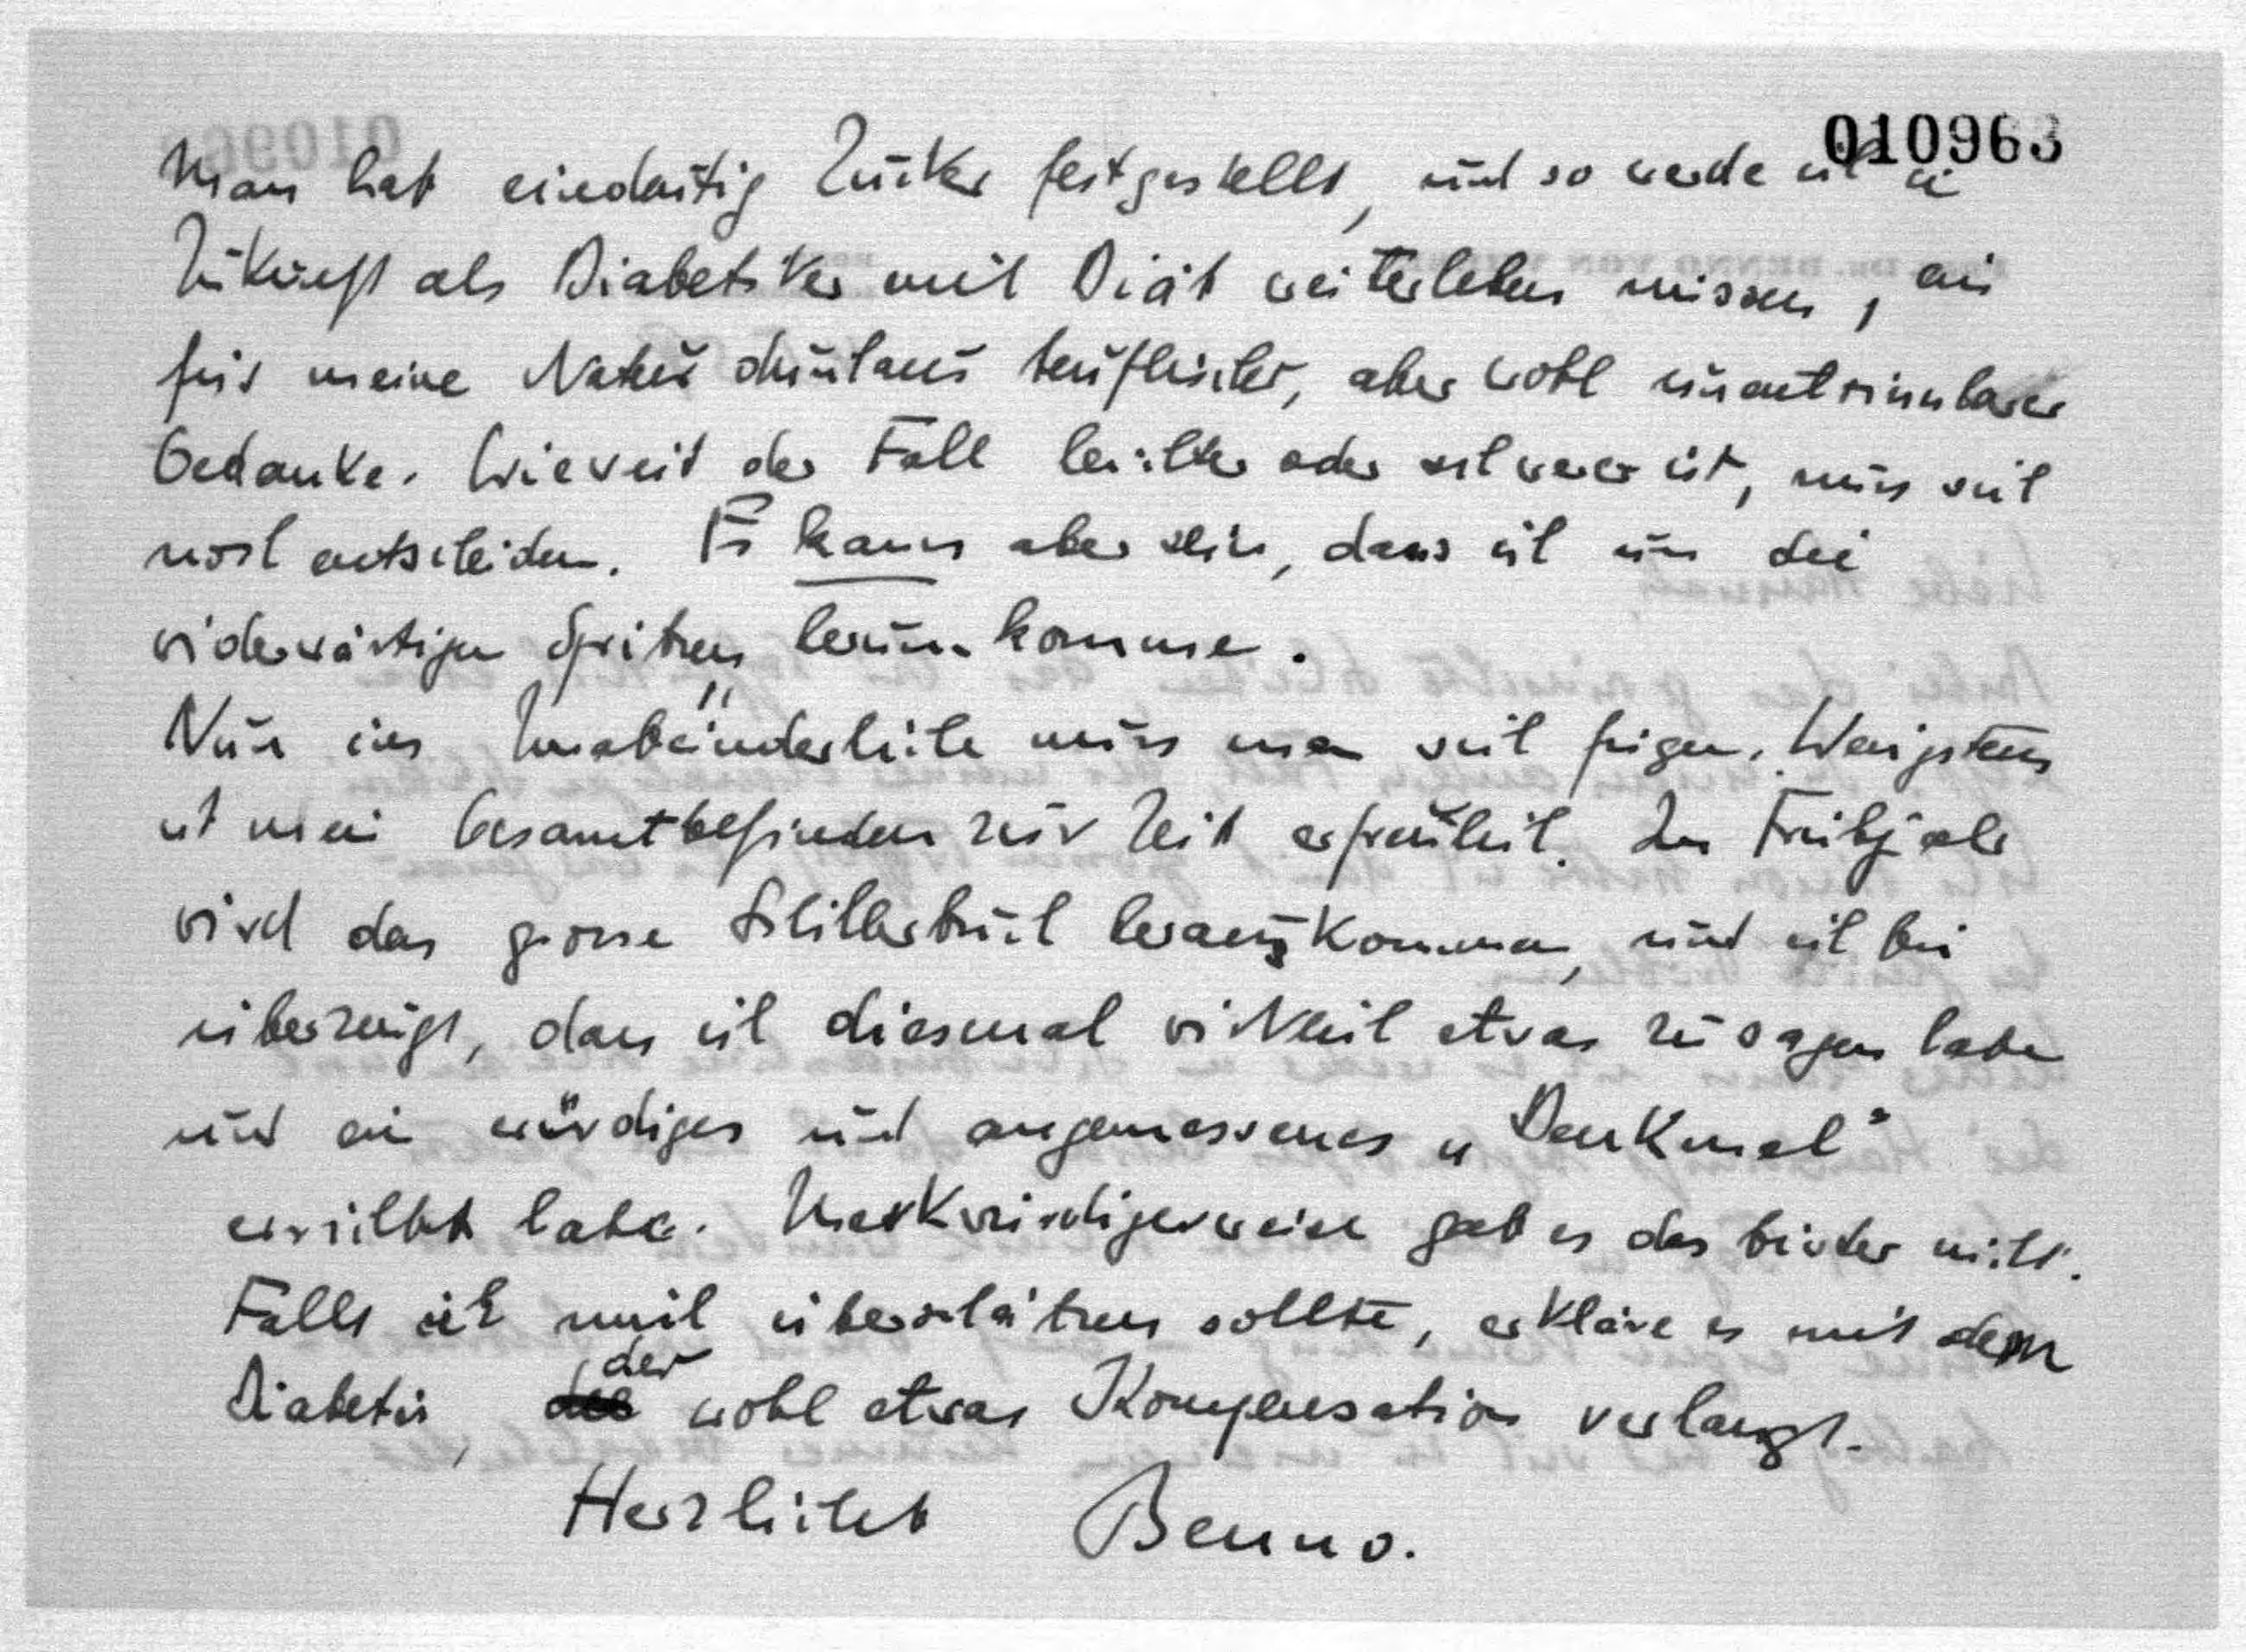 010963
Man hat eindeutig Zucker festgestellt, und so werde ich in
Zukunft als Diabetiker mit Diät weiterleben müssen, ein
für meine Natur durchaus teuflischer, aber wohl unentrinnbarer
Gedanke. Wieweit der Fall leichter oder schwerer ist, muss sich
noch entscheiden. Es kann aber sein, dass ich um die
widerwärtigen Spritzen herumkomme.
Nun ins Unabänderliche muss man sich fügen. Wenigstens
ist mein Gesamtbefinden zur Zeit erfreulich. Im Frühjahr
wird das grosse Schillerbuch herauskommen, und ich bin
überzeugt, dass ich diesmal wirklich etwas zu sagen habe
und ein würdiges und angemessenes „Denkmal"
errichtet habe. Merkwürdigerweise gab es das bisher nicht.
Falls ich mich überschätzen sollte, erkläre es mit dem
Diabetis, der wohl etwas Kompensation verlangt.
Herzlichst Benno.